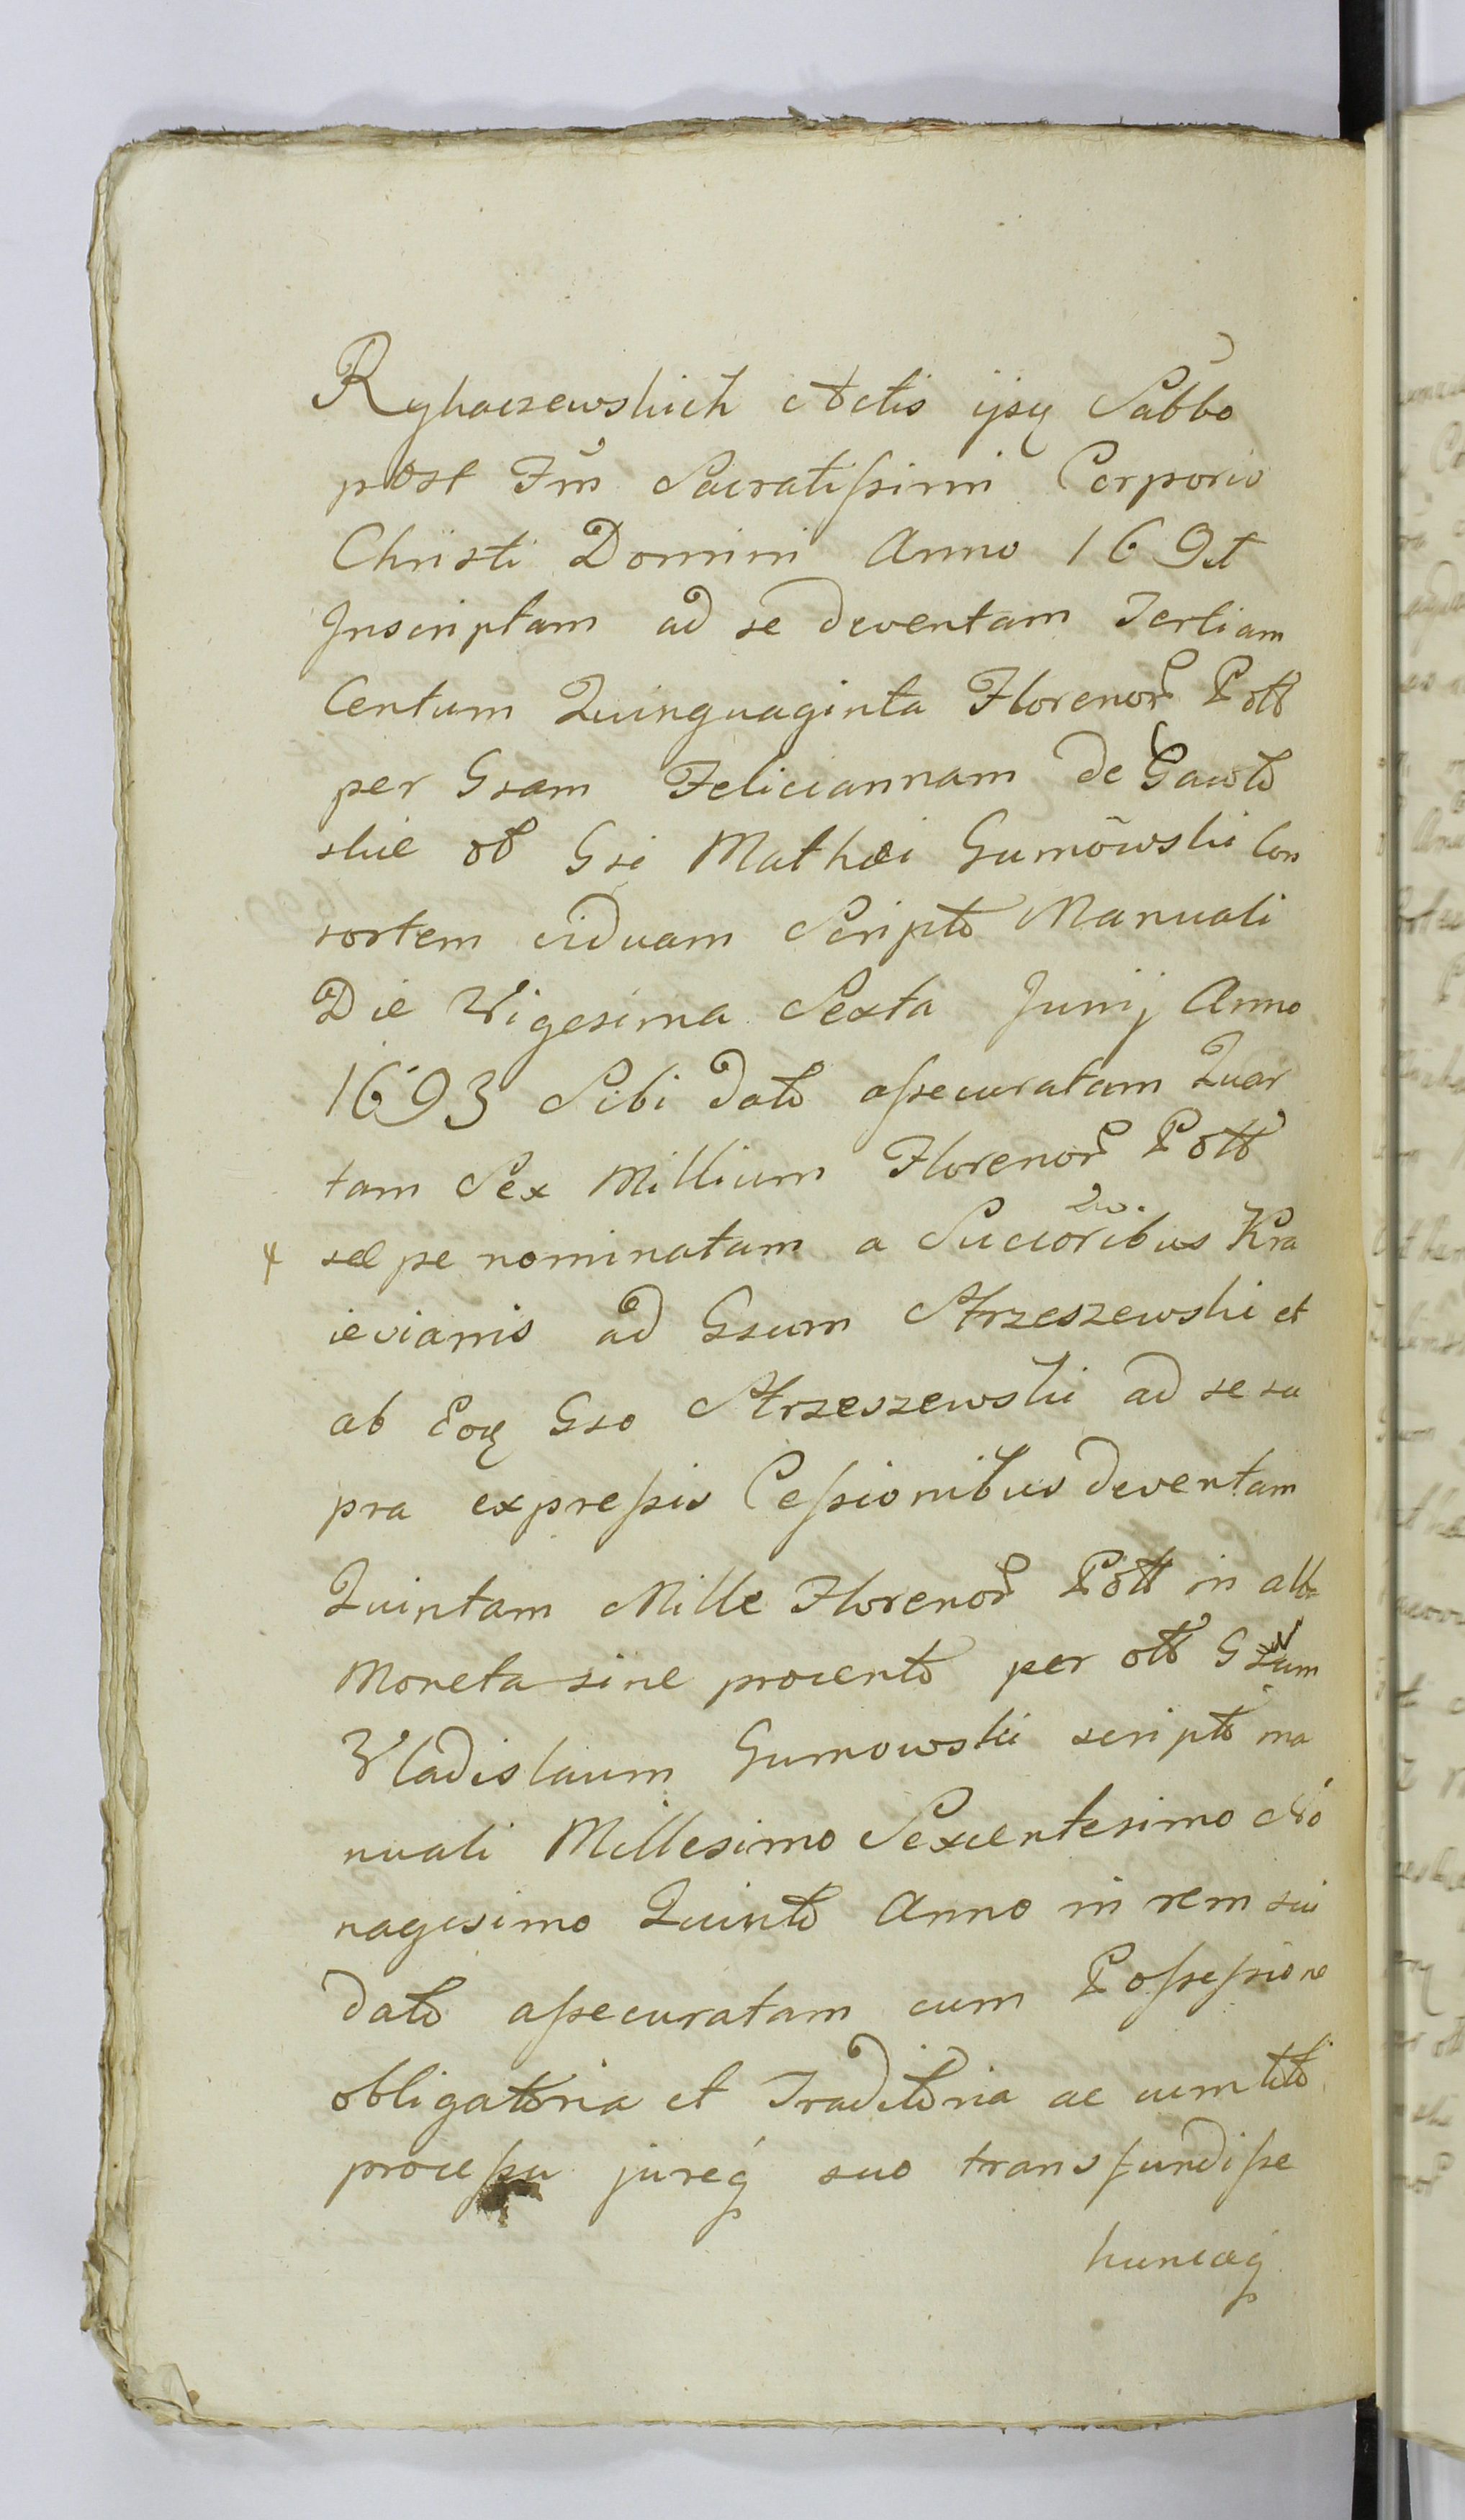 Rykaczewskich Actis ijsq Sabbo
post Fm̃ Sacratissimi Corporis
Christi Domini Anno 169t
Inscriptam ad se deventam Tertiam
Centum Quinquaginta Florenor Poll
per Gsam Feliciannam de Gawło
skie ol Gsi Mathæi Gumõwski Con
sortem viduam Scripto Manuali
Die Vigesima Sexta Junij Anno
1693 Sibi dato assecuratam Quar
tam Sex Millium Florenor Poll
sæpe nominatam a Succõribus Kra
ievianis ad Gsum Strzeszewski et
ab Eoq Gso Strzeszewski ad se su
pra expressis Cessionibus deventam
Quintam Mille Florenor Poll in alba
Moneta sine procento per oll Gsum
Vladislaum Gumowski scripto ma
nuali Millesimo Sexcentesimo No
nagesimo Quinto Anno in rem sui
dato assecuratam cum Possessione
obligatoria et Traditoria ac cum toto
processu jureq́ suo transfundisse
huncaq́